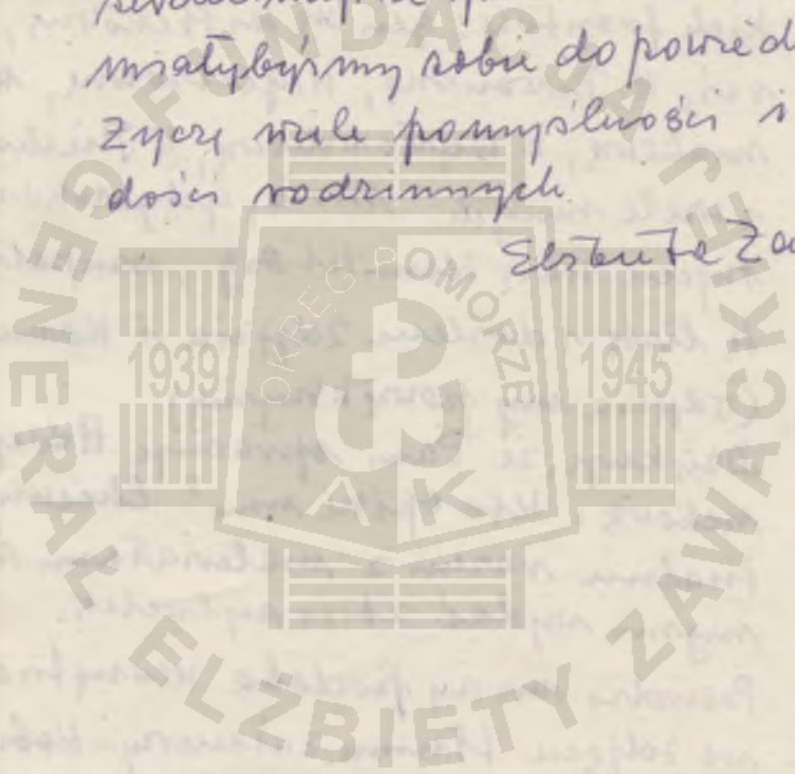 miałybyśmy sobie do powied
Życzę wiele pomyślności i
dości rodzinnych.
Elżbieta Za
FUNDACJA GENERAŁ ELŻBIETY ZAWACKIEJ
OKRĘG POMORZE
1939 1945
AK